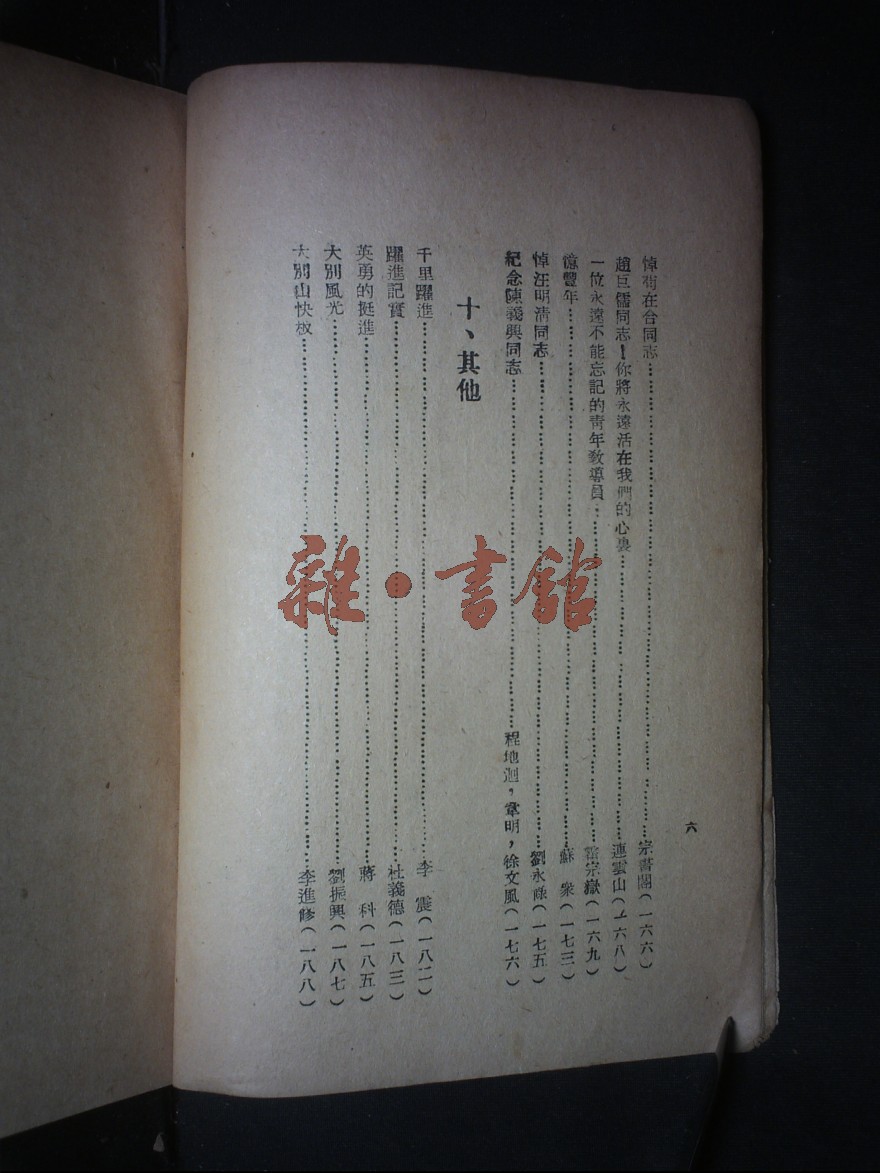 六
悼𨛦在合同志……宗書閣（一六六）
趙巨儒同志！你將永遠活在我們的心裏……連雲山（一六八）
一位永遠不能忘記的靑年敎導員……霍宗嶽（一六九）
憶豐年……蘇　衆（一七三）
悼汪明淸同志……劉永祿（一七五）
紀念陳義興同志……程地迴，韋明，徐文風（一七六）
十、其他
千里躍進……李　震（一八二）
躍進記實……杜義德（一八三）
英勇的挺進……蔣　科（一八五）
大別風光……劉振興（一八七）
大別山快板……李進修（一八八）
雜・書館